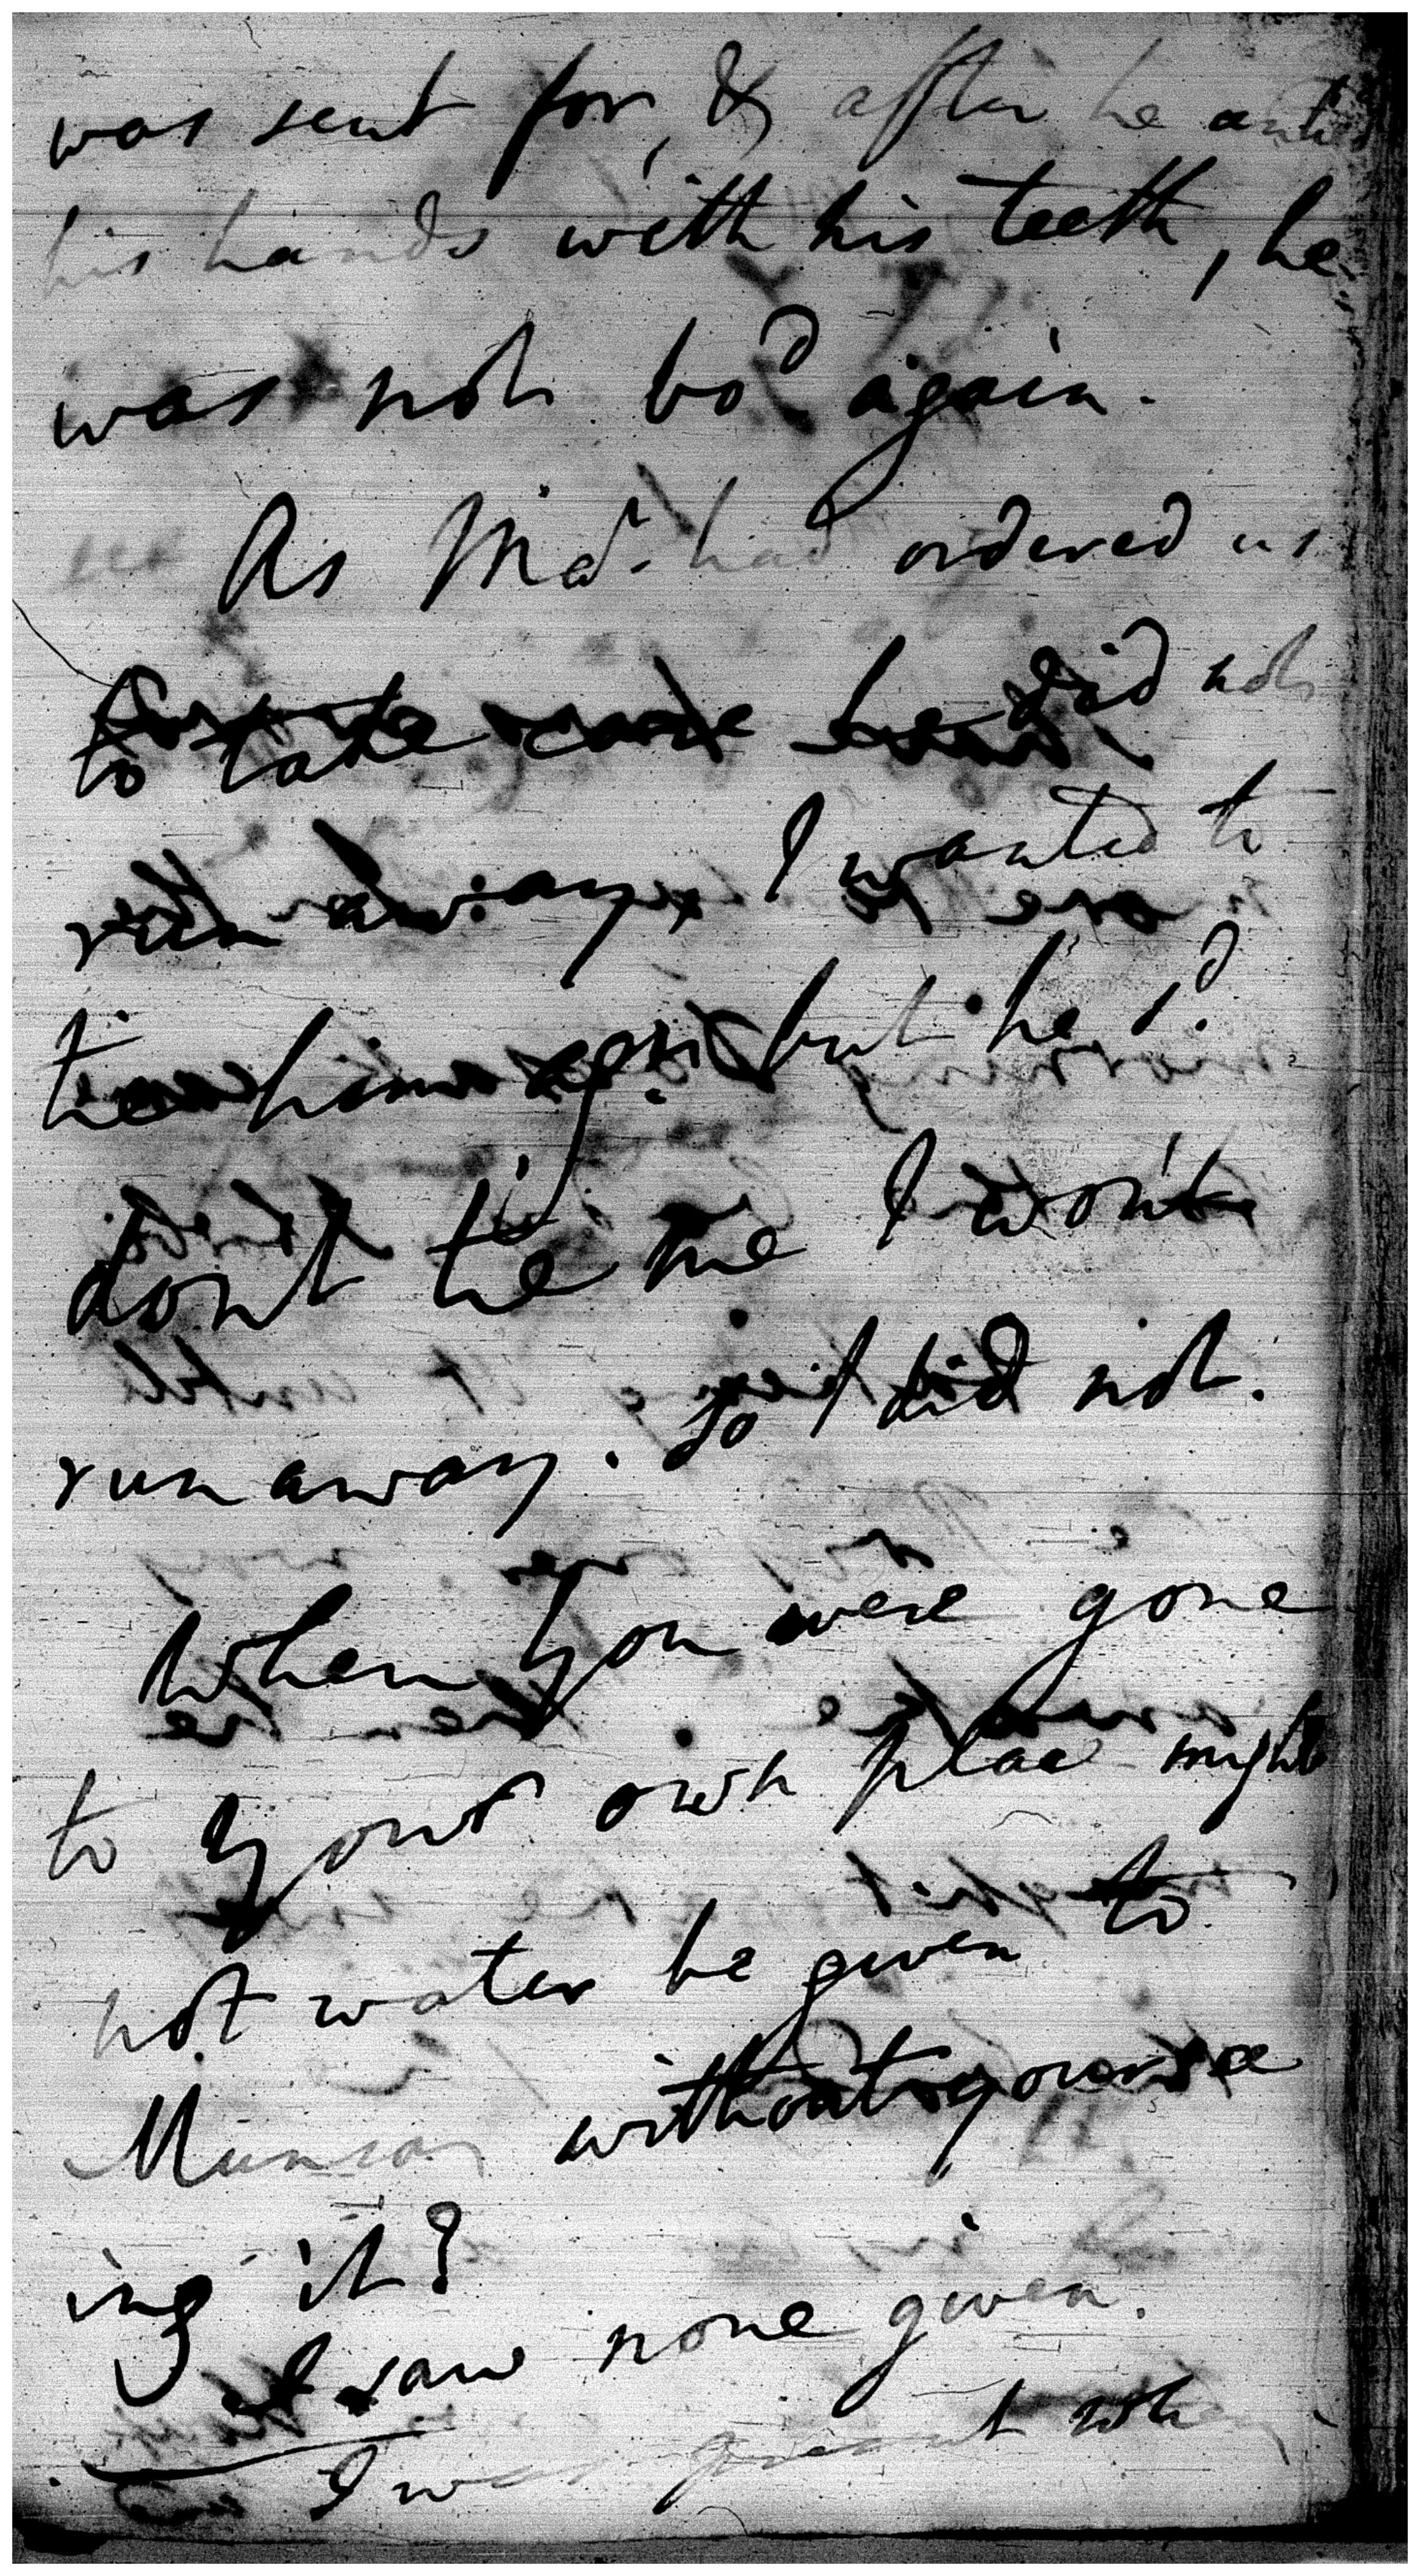 was sent for, & after he untied
his hands with his teeth, he
was not bod again.
As Mar. had ordered us
to take care he did not
run away, I wanted to
tie him again but he sd
don't tie me I won't
run away. So I did not.
When you were gone
to your own place might
not water be given to
Munroa without your see
ing it?
I saw none given.
I was present when